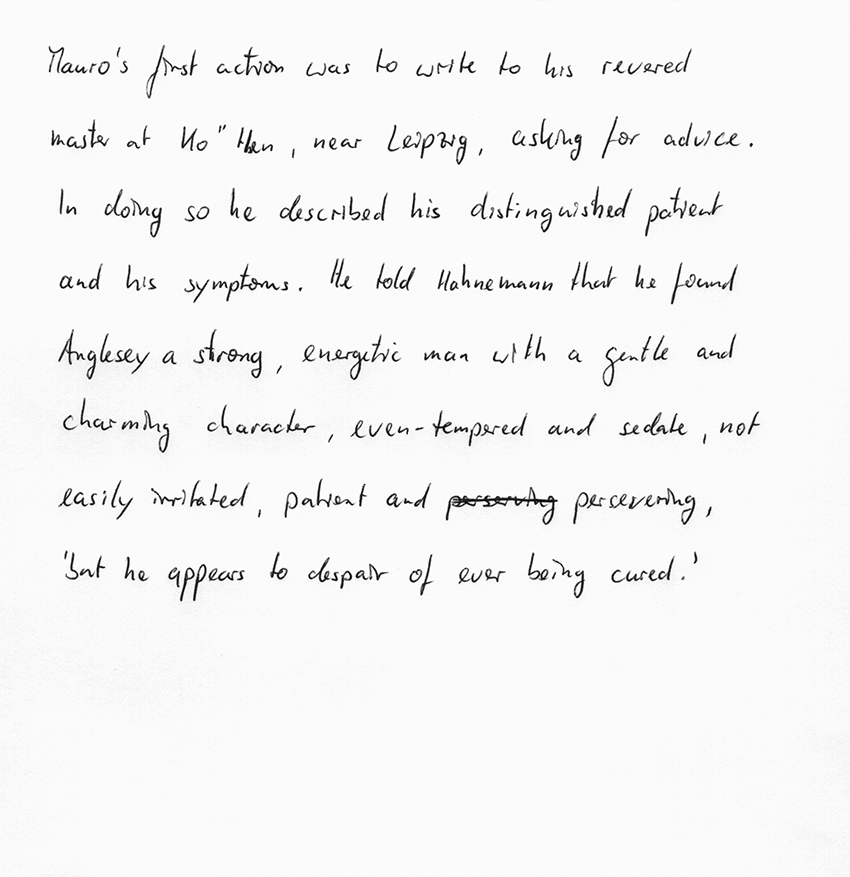 Mauro's first action was to write to his revered
master at Ko"then, near Leipzig, asking for advice.
In doing so he described his distinguished patient
and his symptoms. He told Hahnemann that he found
Anglesey a strong, energetic man with a gentle and
charming character, even-tempered and sedate, not
easily irritated, patient and perserving persevering,
'but he appears to despair of ever being cured.'